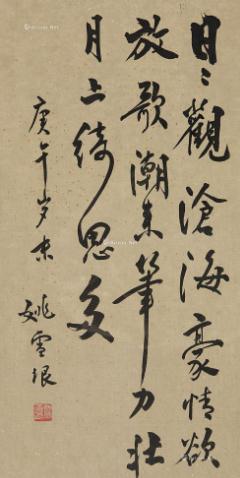 日々觀滄海豪情欲
放歌潮來筆力壯
月上綺思多
庚午岁末
姚雪垠